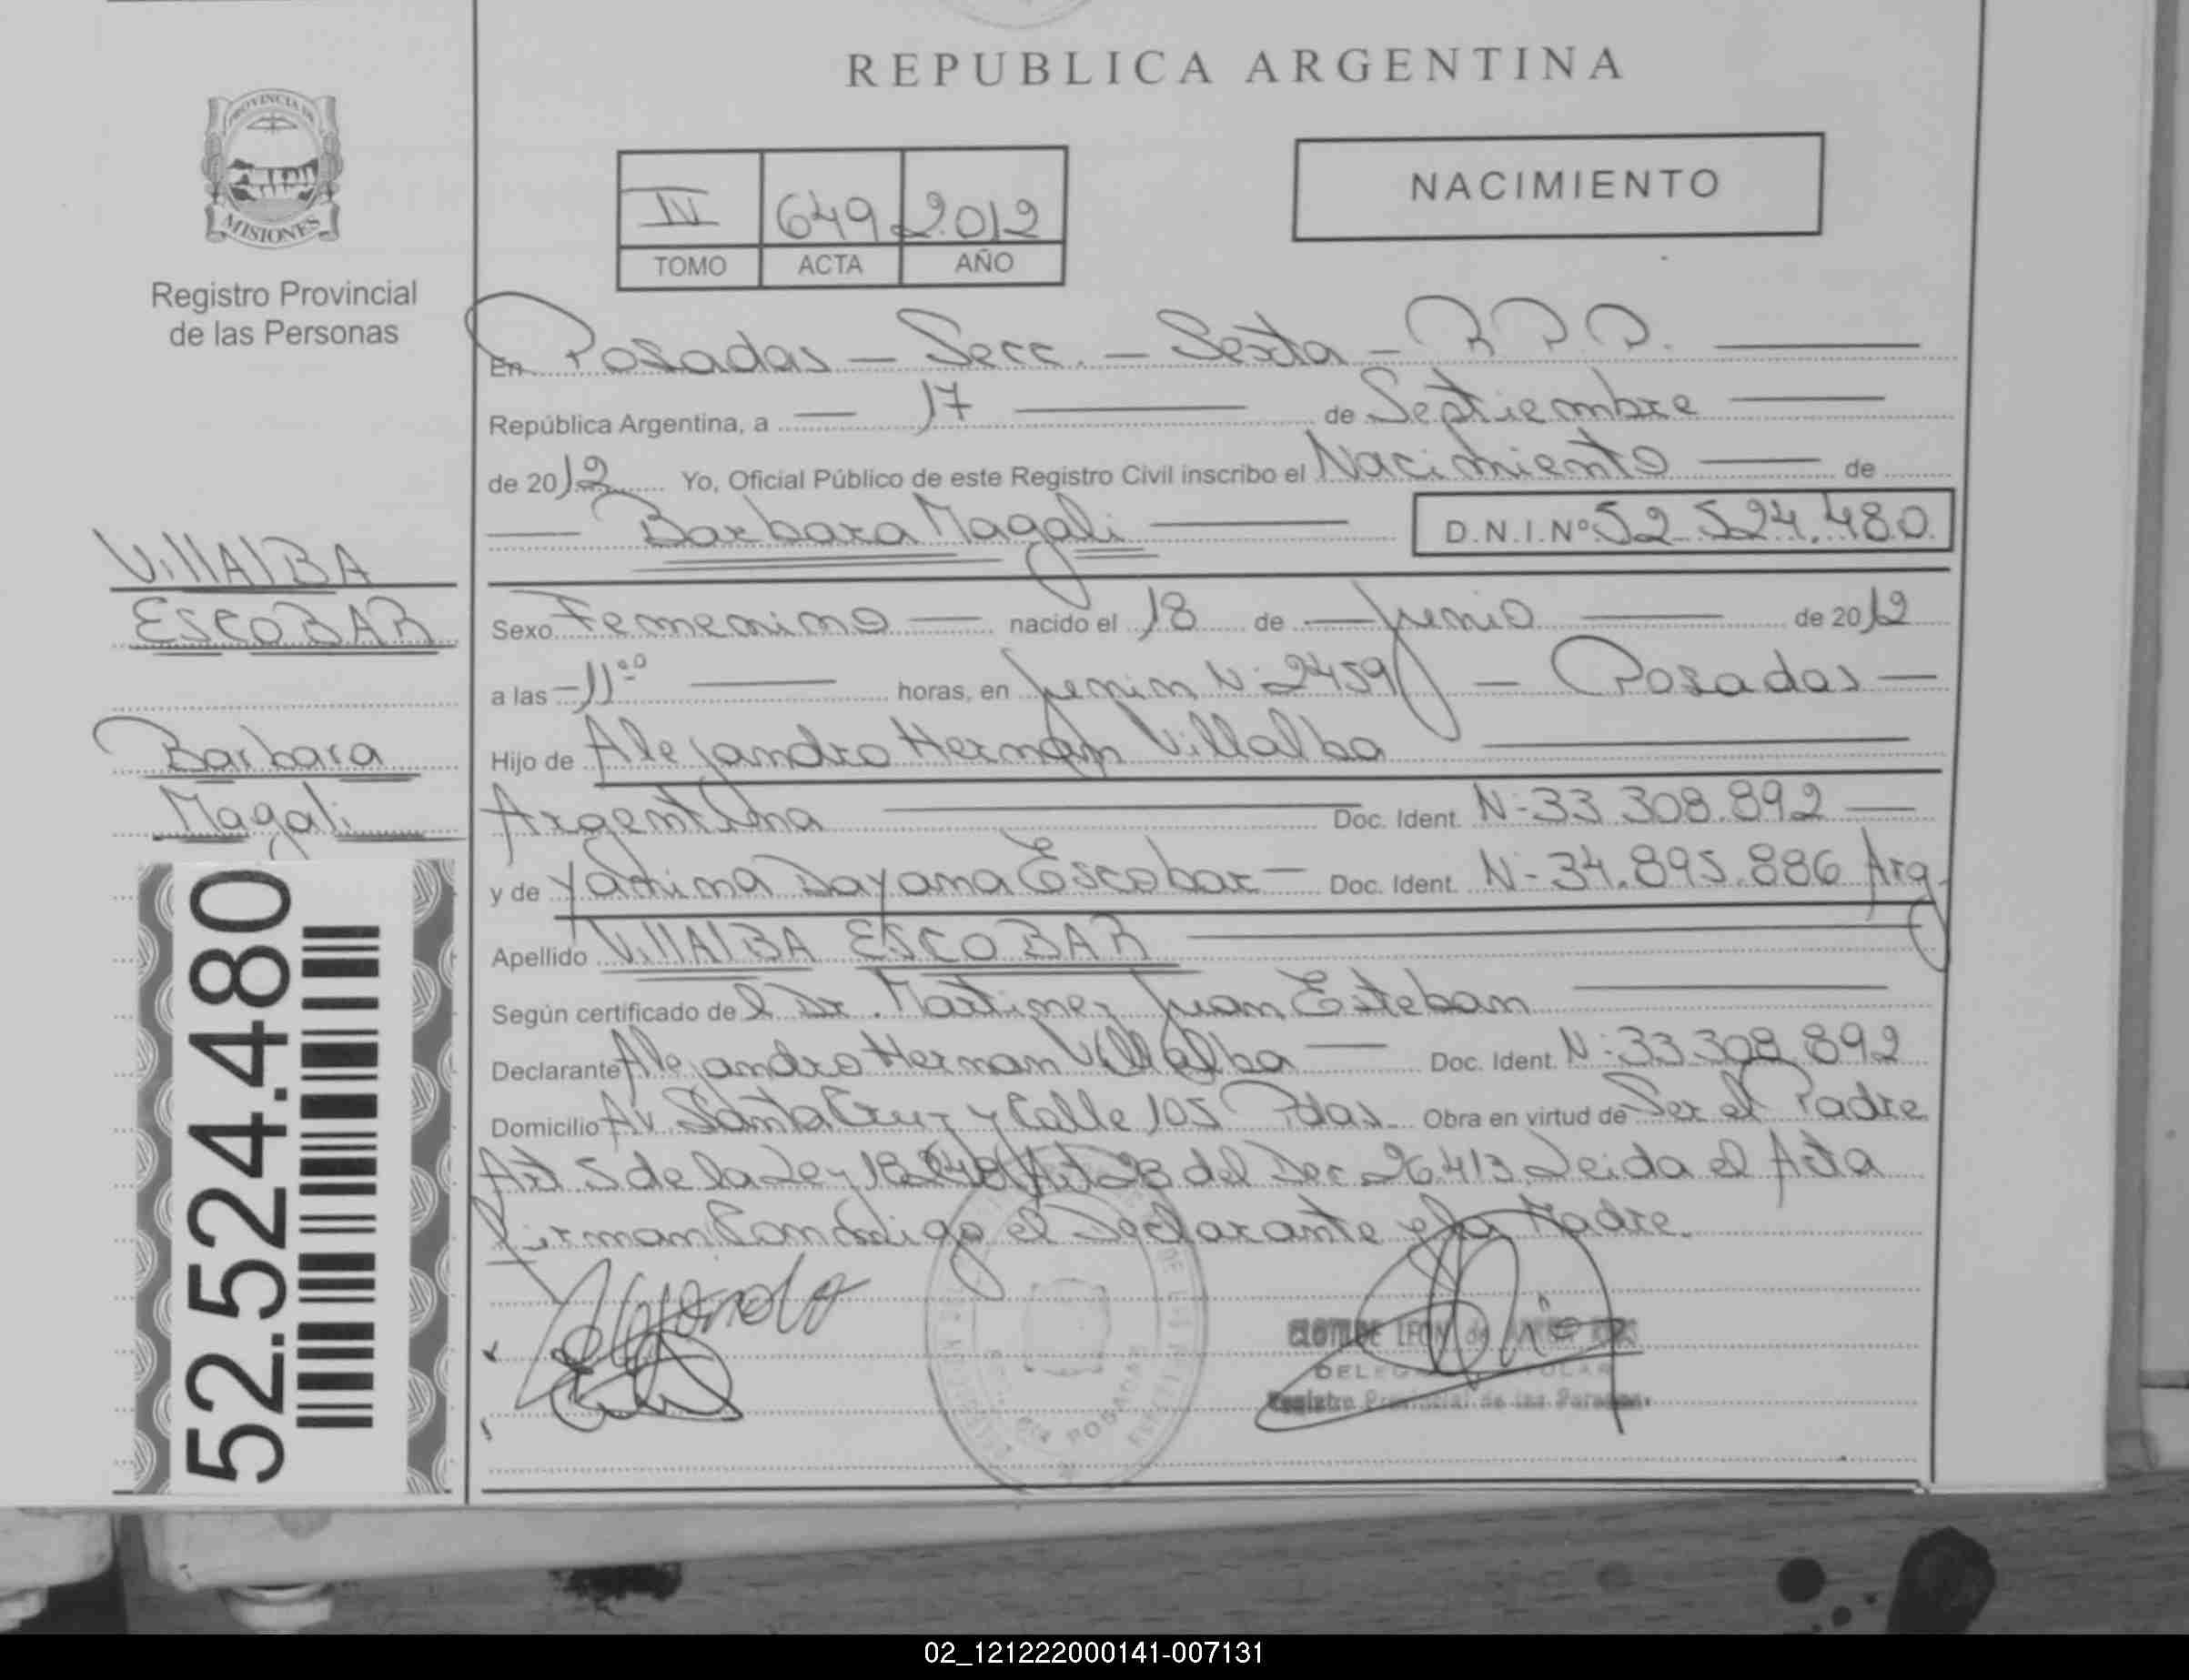 REPUBLICA ARGENTINA
PROVINCIA DE
MISIONES
Registro Provincial
de las Personas
IV 649 2012
TOMO ACTA AÑO
NACIMIENTO
En Posadas - Secc. - Sexta - R.P.P.
República Argentina, a 17 de Septiembre
de 2012 Yo, Oficial Público de este Registro Civil inscribo el Nacimiento de
Barbara Magali D.N.I.Nº 52.524.480
VIllAlBA
ESCOBAR
Barbara
Magali
52.524.480
Sexo Femenino nacido el 18 de Junio de 2012
a las 11:00 horas, en Junin N: 2459 - Posadas
Hijo de Alejandro Hernan Villalba
Argentina Doc. Ident. N-33.308.892
y de Dayana Escobar Doc. Ident. N-34.895.886 Arg.
Apellido VIllAlBA ESCOBAR
Según certificado de l Dr. Martinez Juan Esteban
Declarante Alejandro Hernan Villalba Doc. Ident. N:33.308.892
Domicilio Av Santa Cruz y Calle 105 Pdas. Obra en virtud de Ser el Padre
Art 5 de la Ley 18.248 Art 28 del Dec 26.413 Leida el Acta
firman Conmigo el Declarante y la Madre.
Alejandro
CLOTILDE LEON de
Registro Provincial de las Personas
POSADAS
02_121222000141-007131